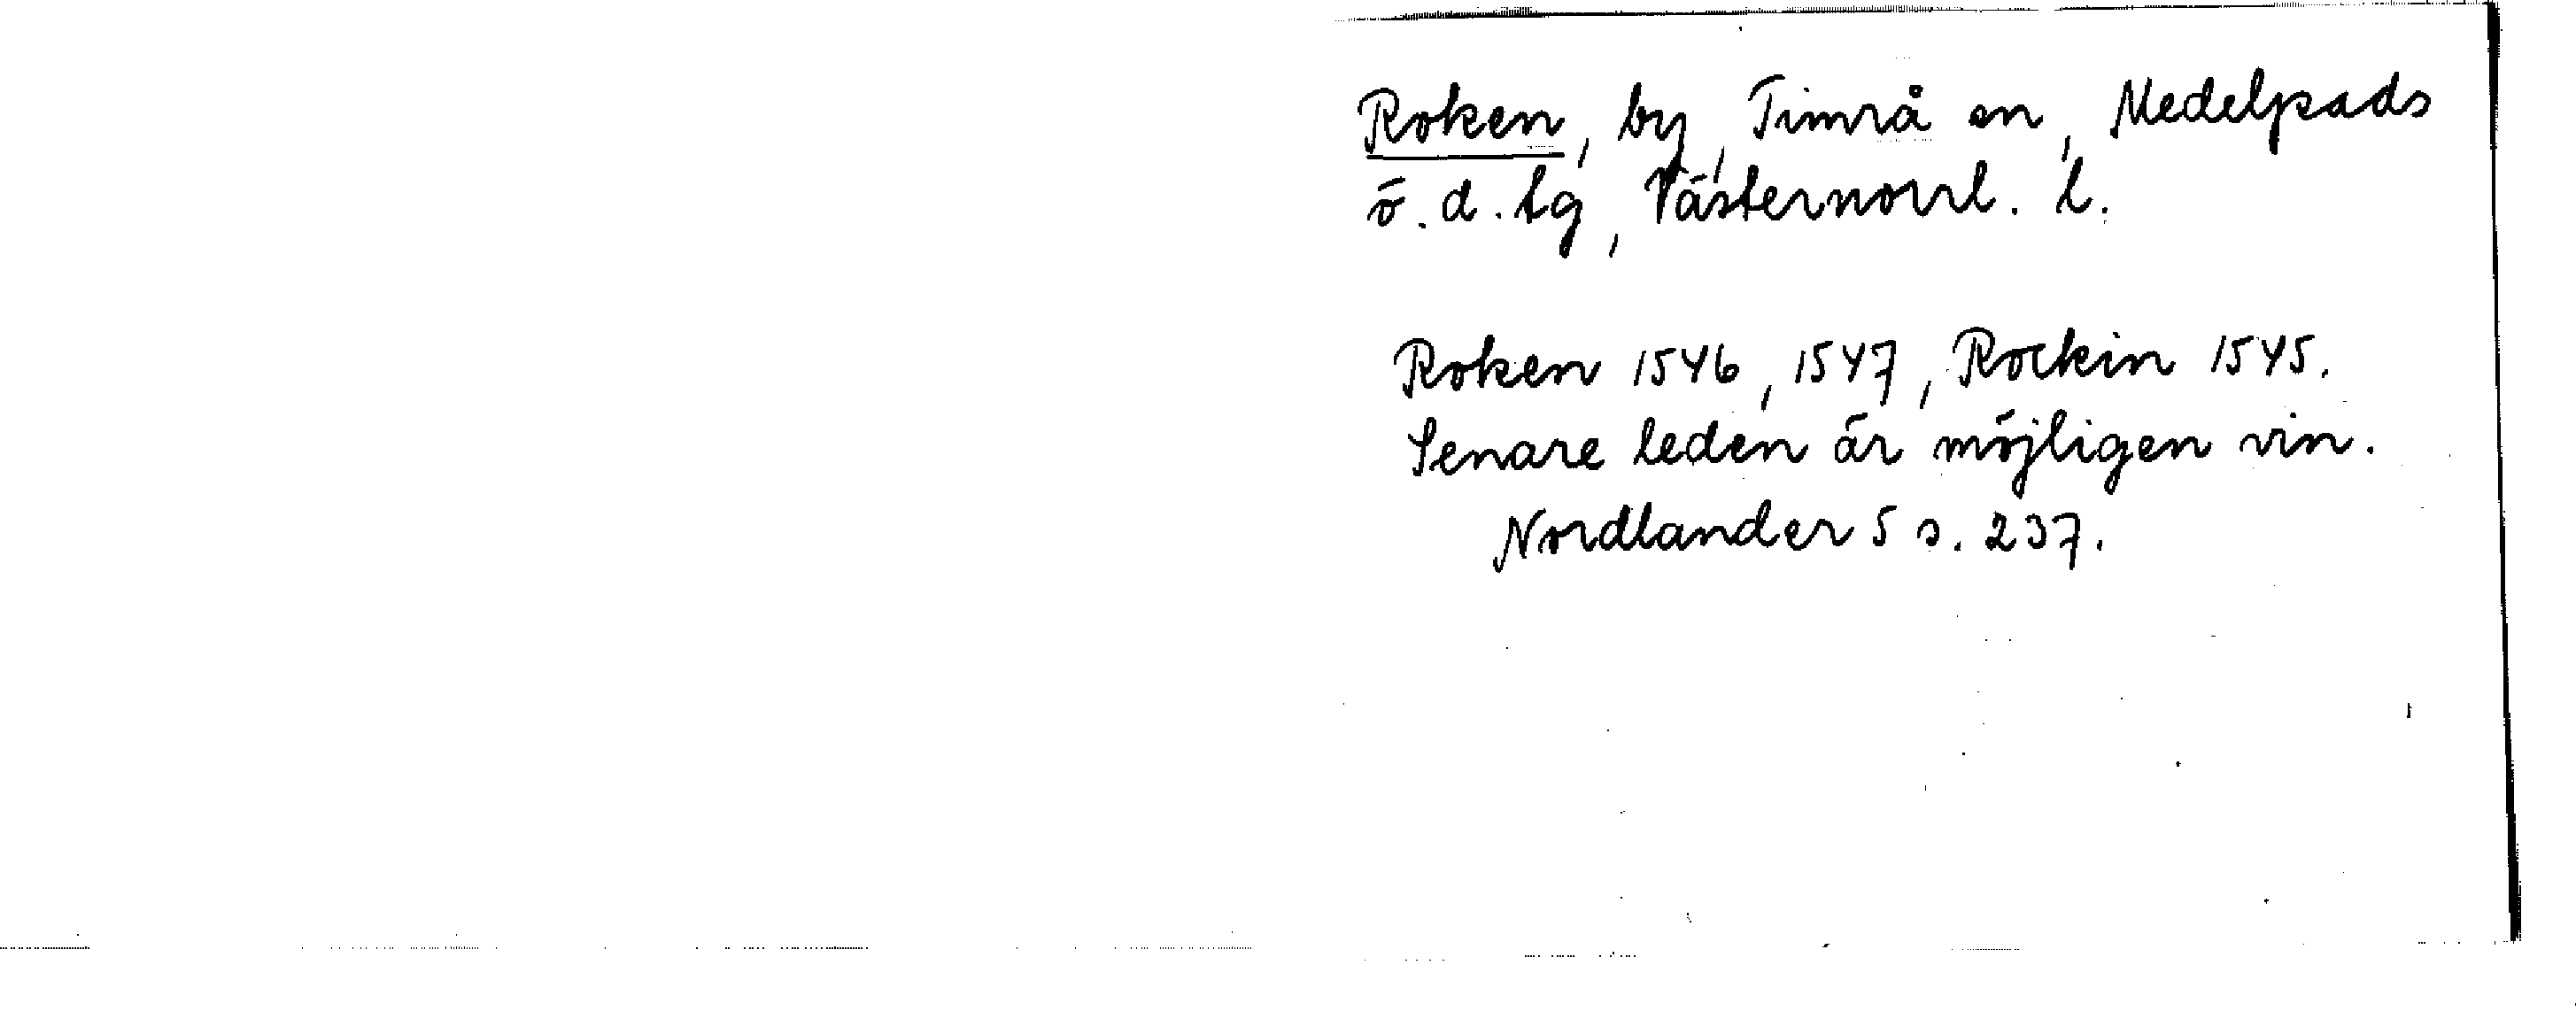 Roken, by, Timrå sn, Medelpads
ö. d. tg, Västernorrl. l.
Roken 1546, 1547, Rockin 1545.
Senare leden är möjligen vin.
Nordlander 5 s. 237.